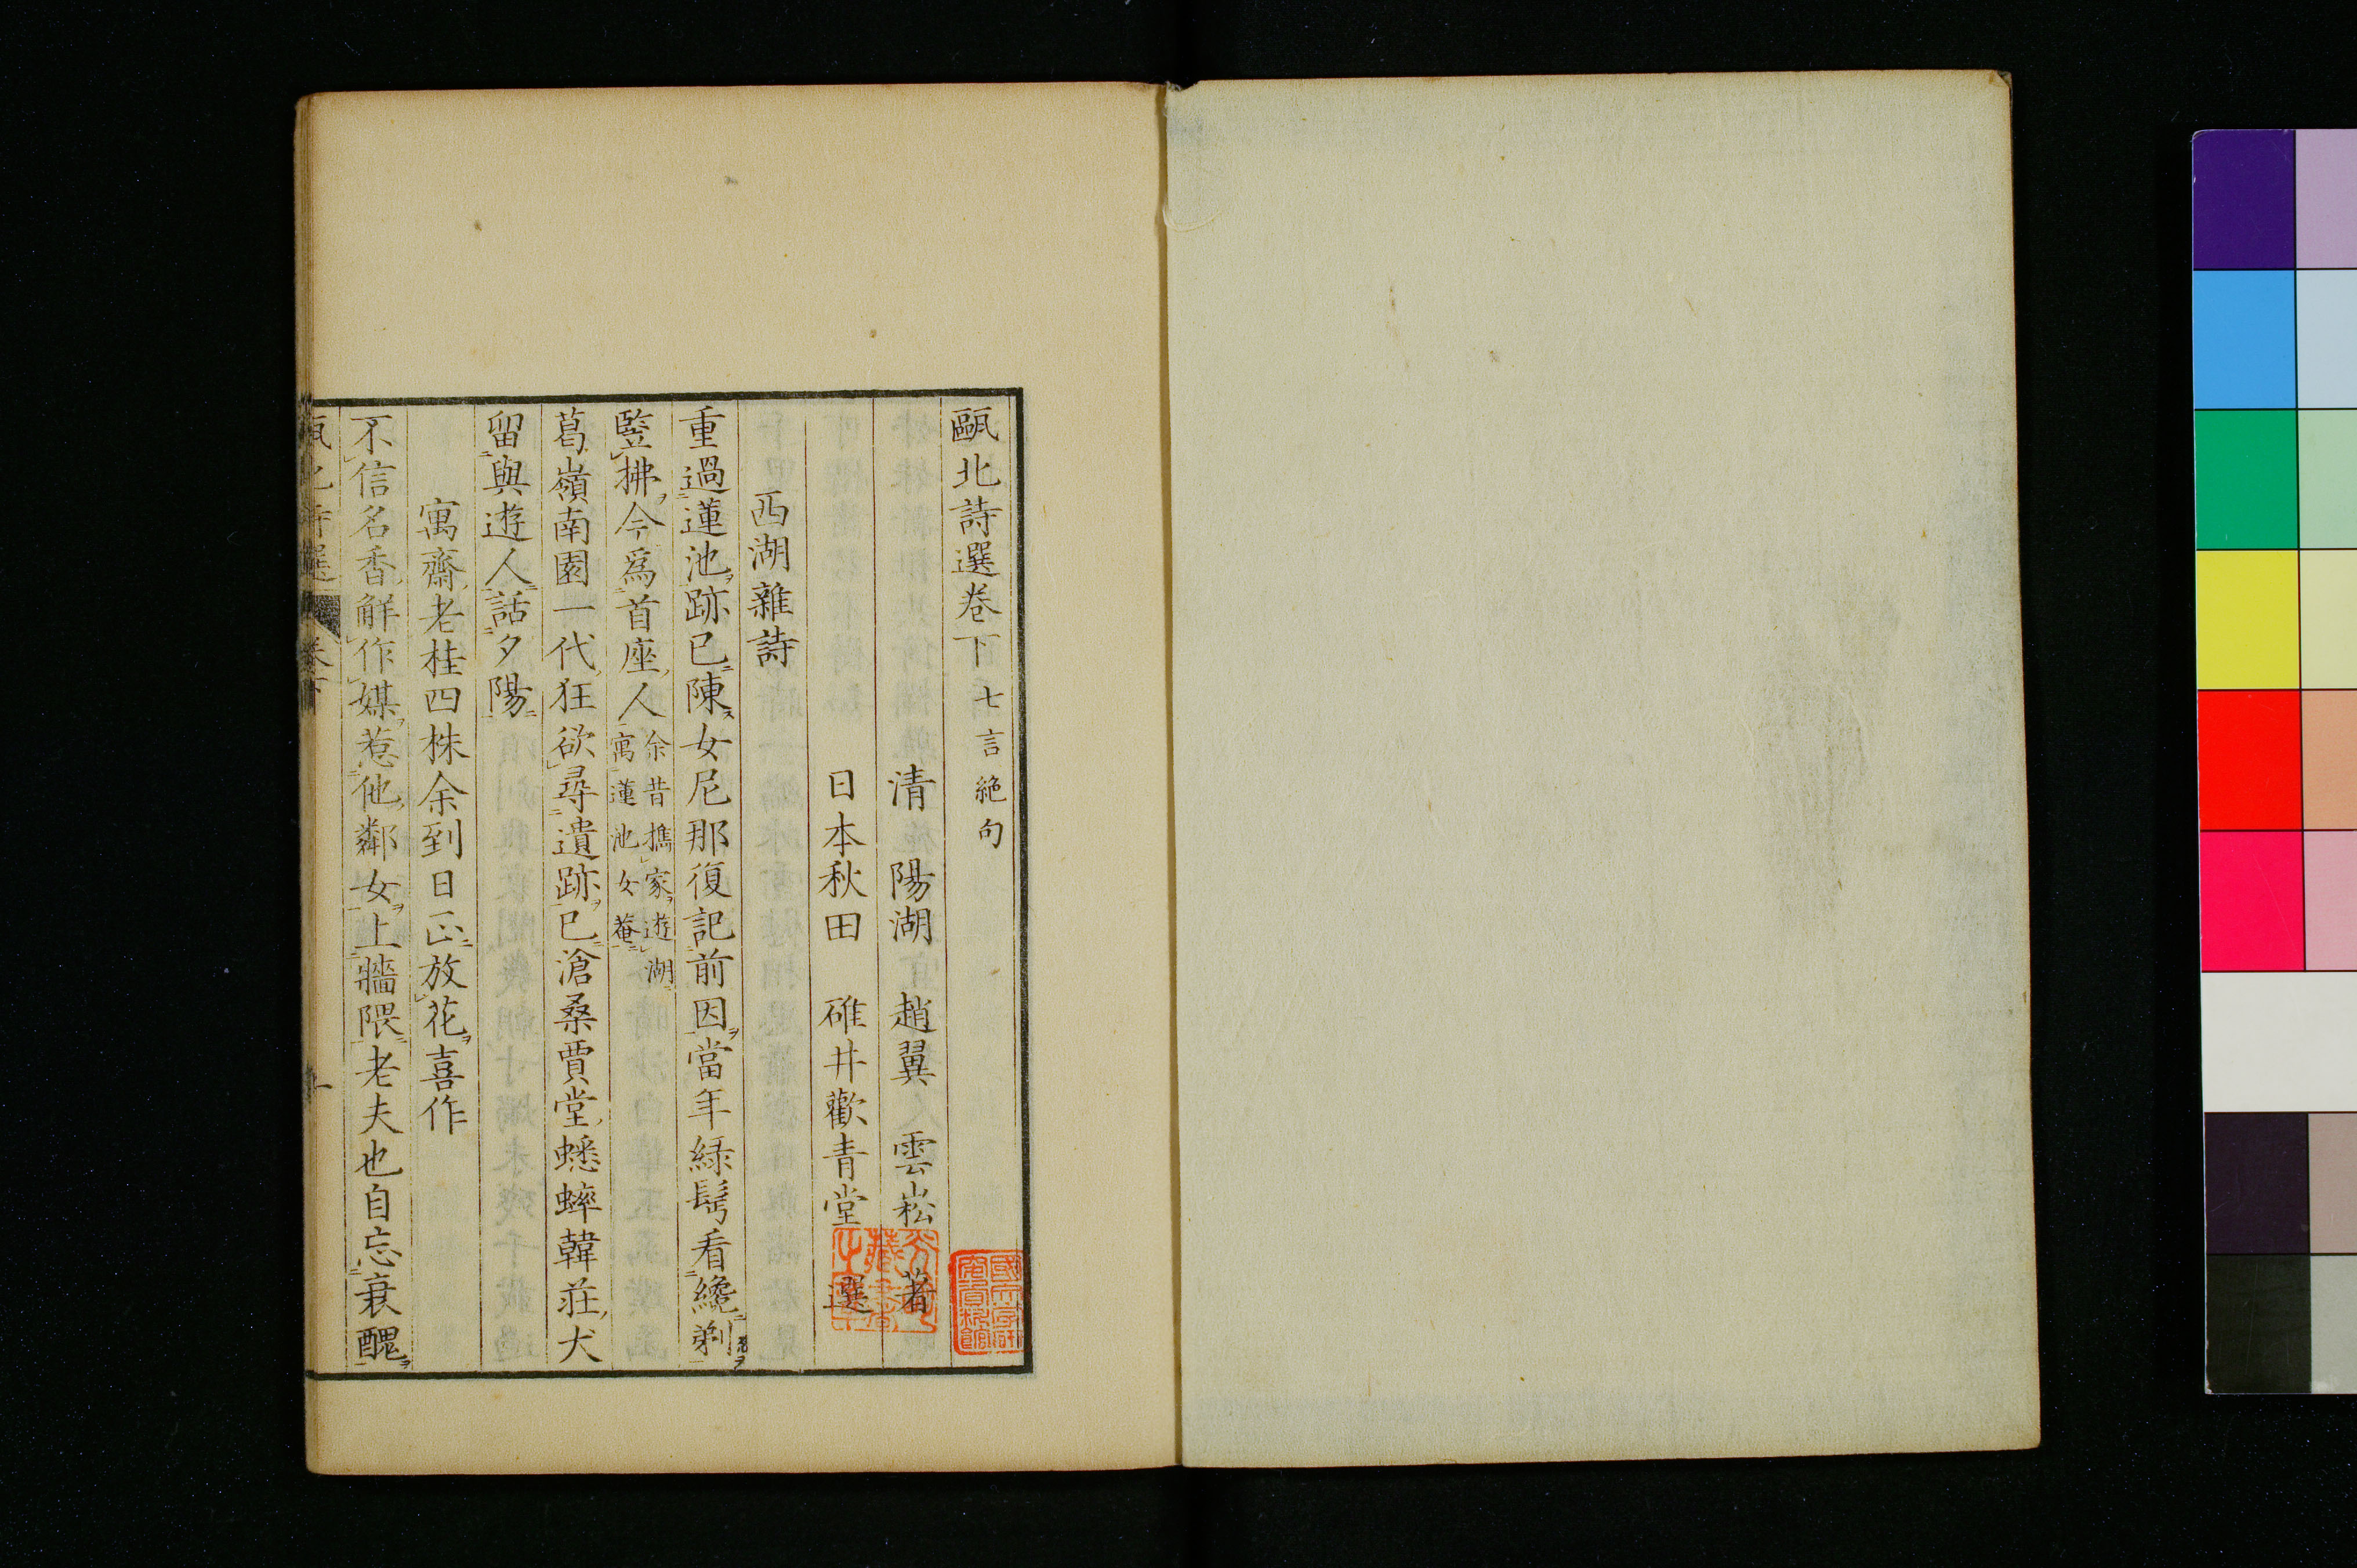 甌北詩選卷下 七言絶句
清 陽湖 趙翼 雲崧 著
日本秋田 碓井歡青堂 選
西湖雜詩
重過蓮池跡已陳女尼那復記前因當年緑髩看纔剃
竪拂今爲首座人余昔攜家遊湖寓蓮池女菴
葛嶺南園一代狂欲尋遺跡已滄桑賈堂蟋蟀韓莊犬
留與遊人話夕陽
寓齋老桂四株余到日正放花喜作
不信名香觧作媒惹他鄰女上牆隈老夫也自忘衰醜